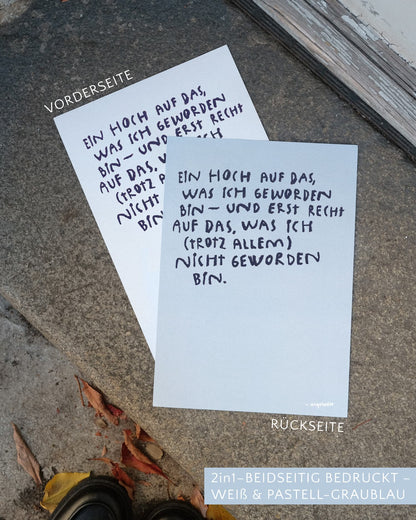 VORDERSEITE
EIN HOCH AUF DAS,
WAS ICH GEWORDEN
BIN – UND ERST RECHT
AUF DAS, W
(TROTZ A
NICHT
BIN
EIN HOCH AUF DAS,
WAS ICH GEWORDEN
BIN – UND ERST RECHT
AUF DAS, WAS ICH
(TROTZ ALLEM)
NICHT GEWORDEN
BIN.
RÜCKSEITE
2in1–BEIDSEITIG BEDRUCKT –
WEIß & PASTELL-GRAUBLAU